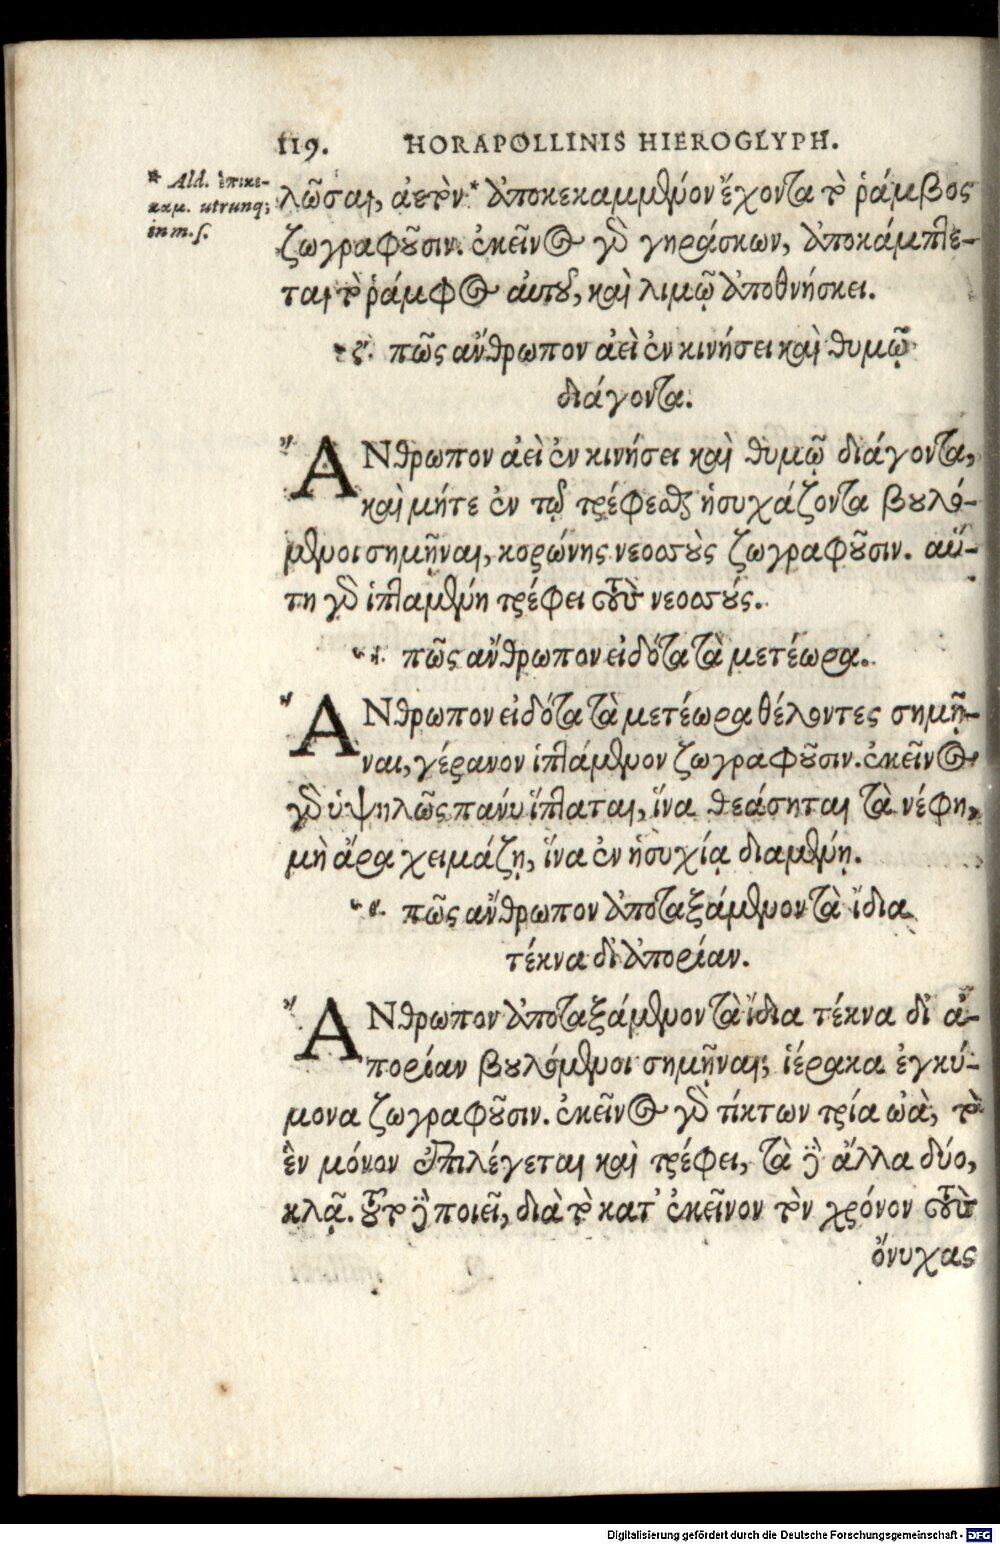 119. HORAPOLLINIS HIEROGLYPH.
* Ald. ἐπικε-
καμ. utrunq;
in m.s.
λῶσαι, ἀετὸν * ἀποκεκαμμένον ἔχοντα τὸ ῥάμβος
ζωγραφοῦσιν. ἐκεῖνος γὰρ γηράσκων, ἀποκάμπτε-
ται τὸ ῥάμφος αὐτοῦ, καὶ λιμῷ ἀποθνήσκει.
πῶς ἄνθρωπον ἀεὶ ἐν κινήσει καὶ θυμῷ
διάγοντα.
ἊΝθρωπον ἀεὶ ἐν κινήσει καὶ θυμῷ διάγοντα,
καὶ μήτε ἐν τῷ τρέφεσθαι ἡσυχάζοντα βουλό-
μενοι σημῆναι, κορώνης νεοσσοὺς ζωγραφοῦσιν. αὕ-
τη γὰρ ἱπταμένη τρέφει τοὺς νεοσσούς.
πῶς ἄνθρωπον εἰδότα τὰ μετέωρα.
ἊΝθρωπον εἰδότα τὰ μετέωρα θέλοντες σημῆ-
ναι, γέρανον ἱπτάμενον ζωγραφοῦσιν. ἐκεῖνος
γὰρ ὑψηλῶς πάνυ ἵπταται, ἵνα θεάσηται τὰ νέφη,
μὴ ἄρα χειμάζῃ, ἵνα ἐν ἡσυχίᾳ διαμένῃ.
πῶς ἄνθρωπον ἀποταξάμενον τὰ ἴδια
τέκνα δι' ἀπορίαν.
ἊΝθρωπον ἀποταξάμενον τὰ ἴδια τέκνα δι' ἀ-
πορίαν βουλόμενοι σημῆναι, ἱέρακα ἐγκύ-
μονα ζωγραφοῦσιν. ἐκεῖνος γὰρ τίκτων τρία ὠὰ, τὸ
ἓν μόνον ἐπιλέγεται καὶ τρέφει, τὰ δὲ ἄλλα δύο,
κλᾷ. τοῦτο δὲ ποιεῖ, διὰ τὸ κατ' ἐκεῖνον τὸν χρόνον τοὺς
ὄνυχας
Digitalisierung gefördert durch die Deutsche Forschungsgemeinschaft - DFG